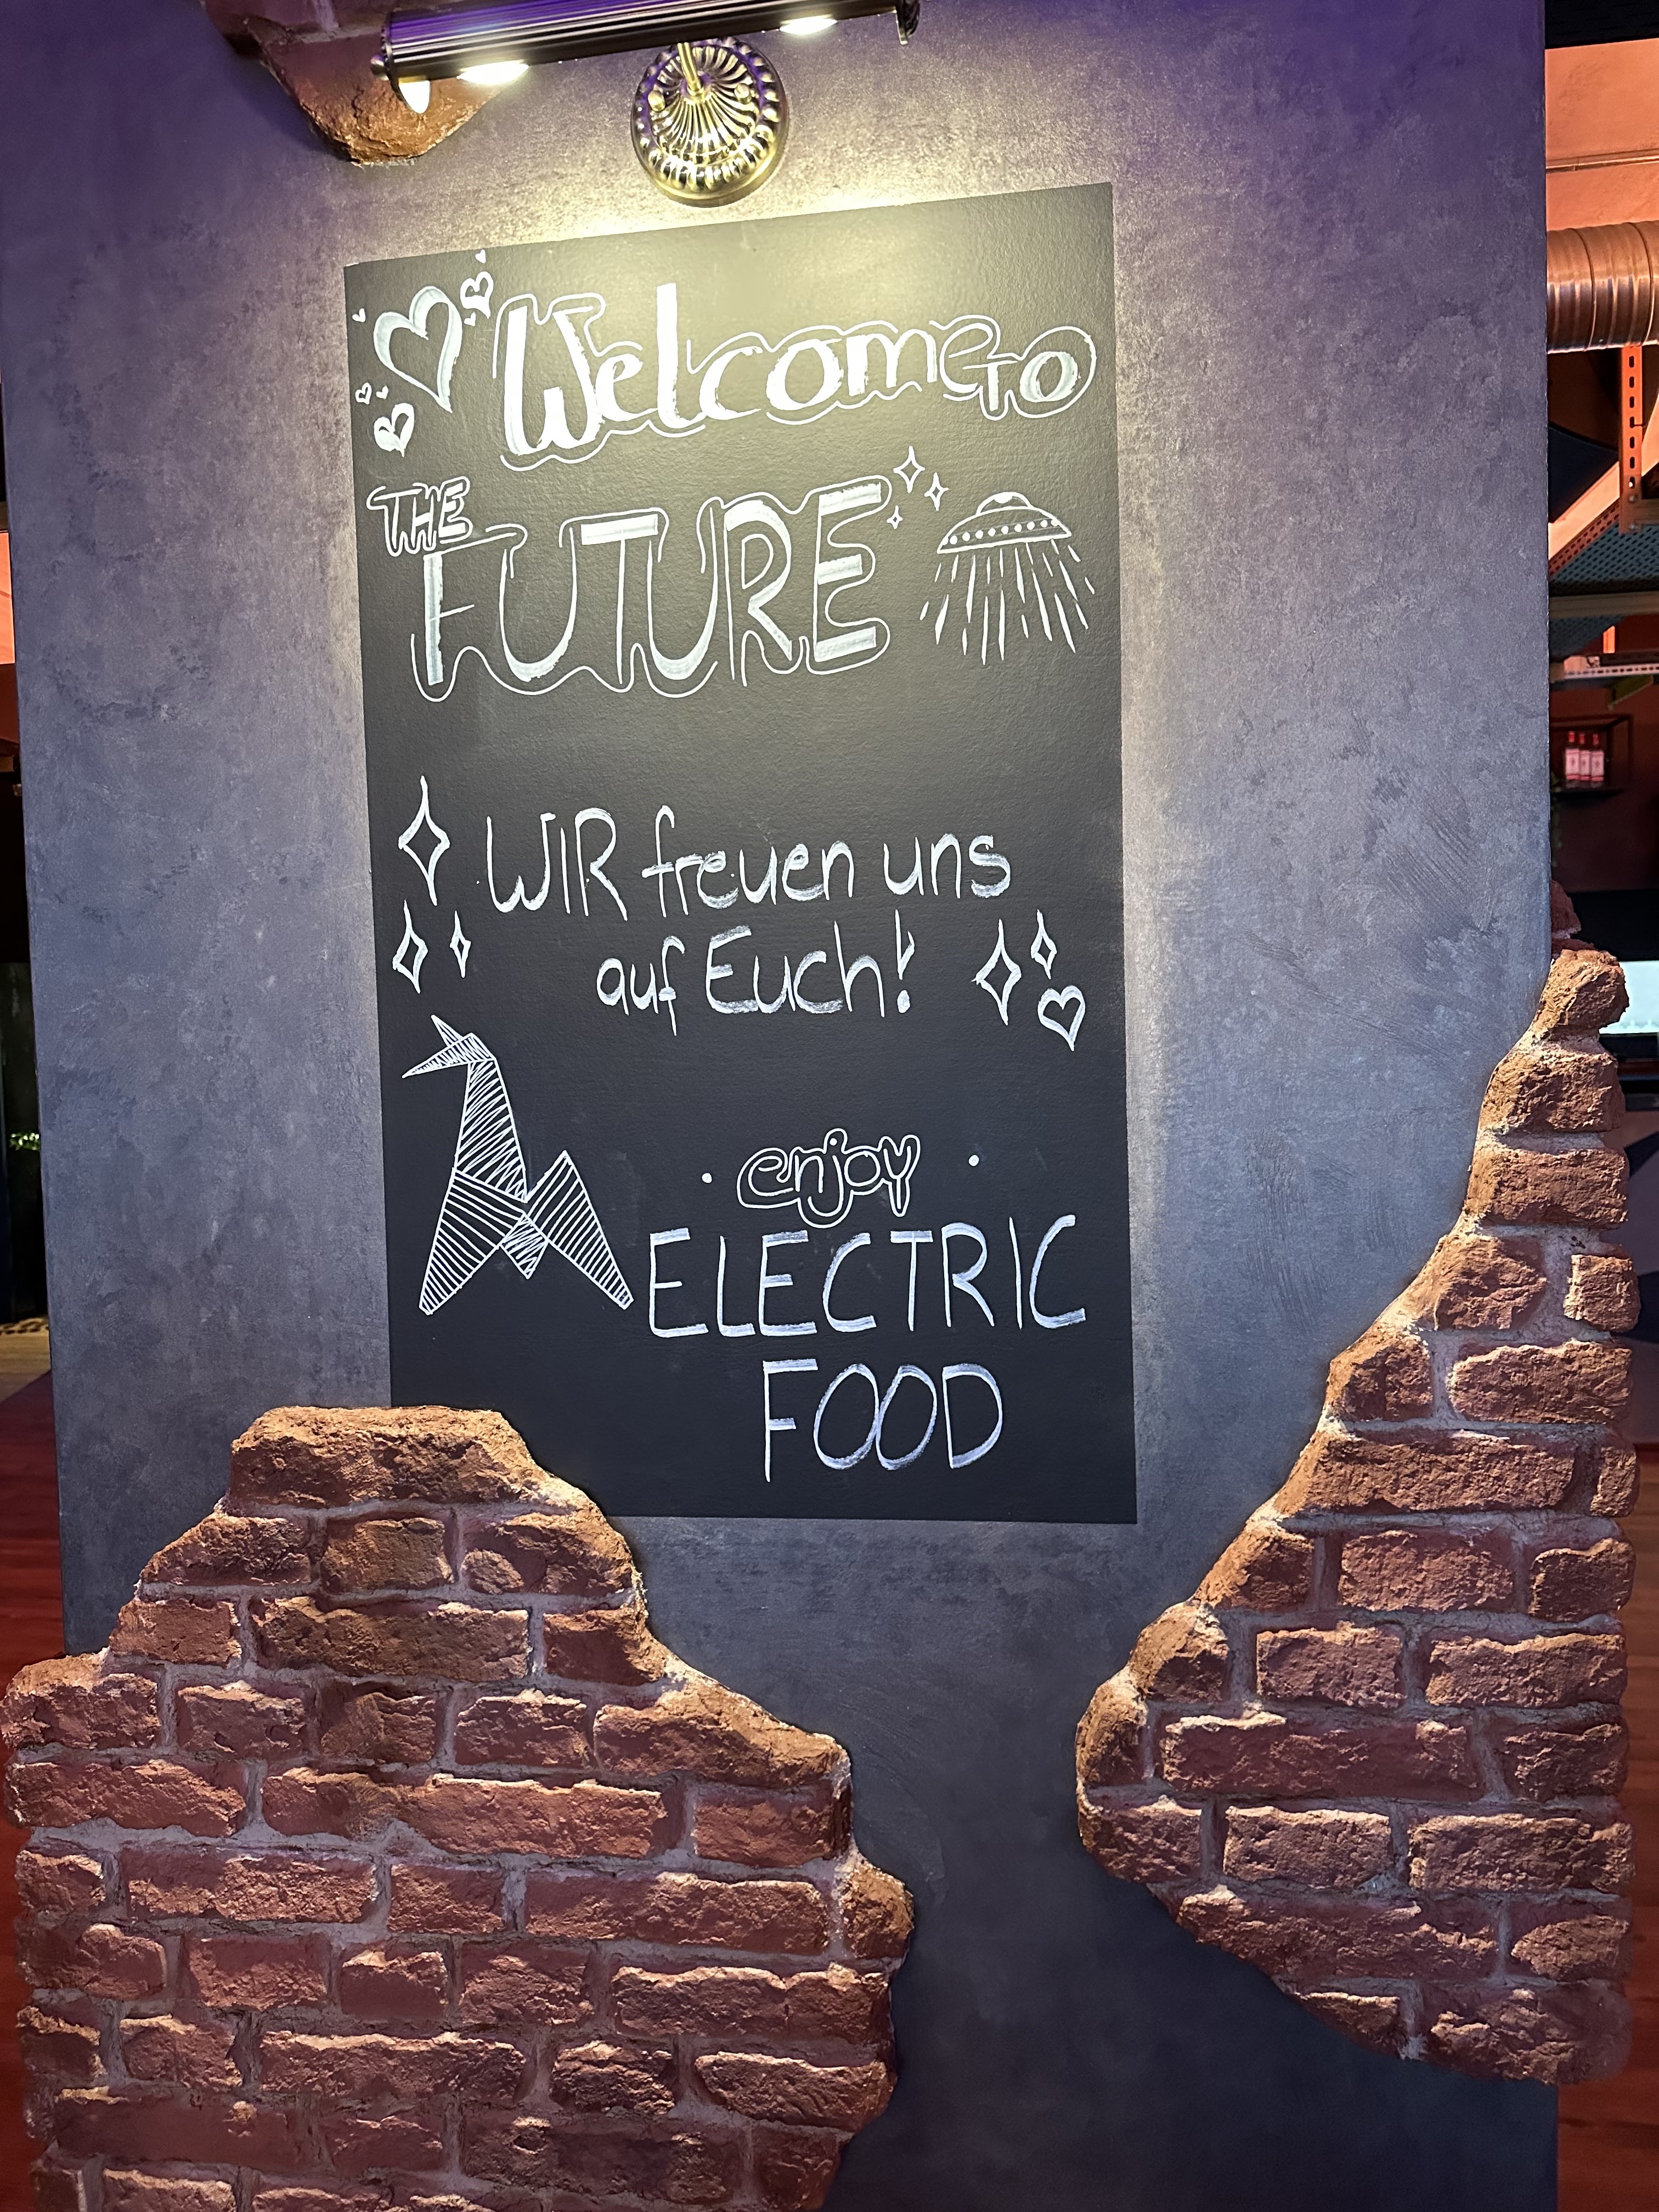 Welcome TO
THE
FUTURE
WIR freuen uns
auf Euch!
enjoy
ELECTRIC
FOOD